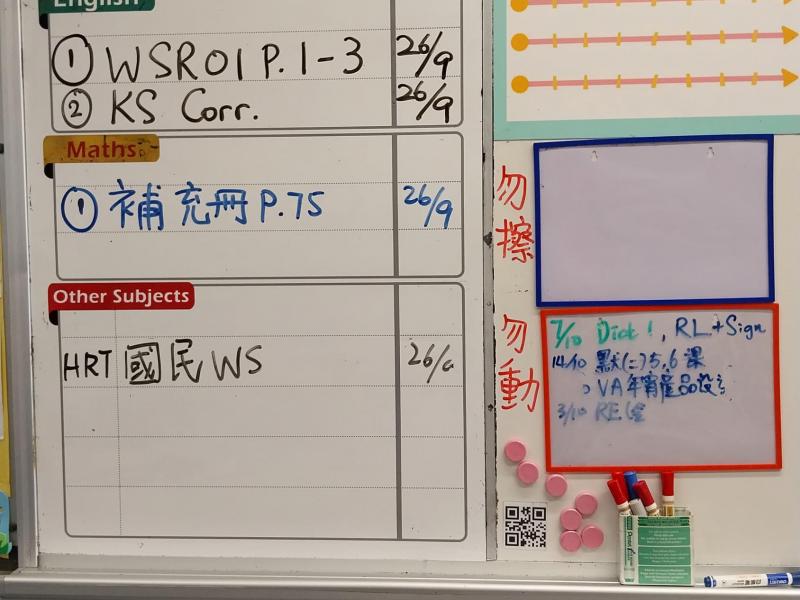 English
① WSR01 P.1-3 26/9
② KS Corr. 26/9
Maths
① 補充冊 P.75 26/9
Other Subjects
HRT 國民 WS 26/9
勿擦
勿動
7/10 Dict 1, RL+Sign
14/10 默(二)5,6課
VA年宵產品設
3/10 RE